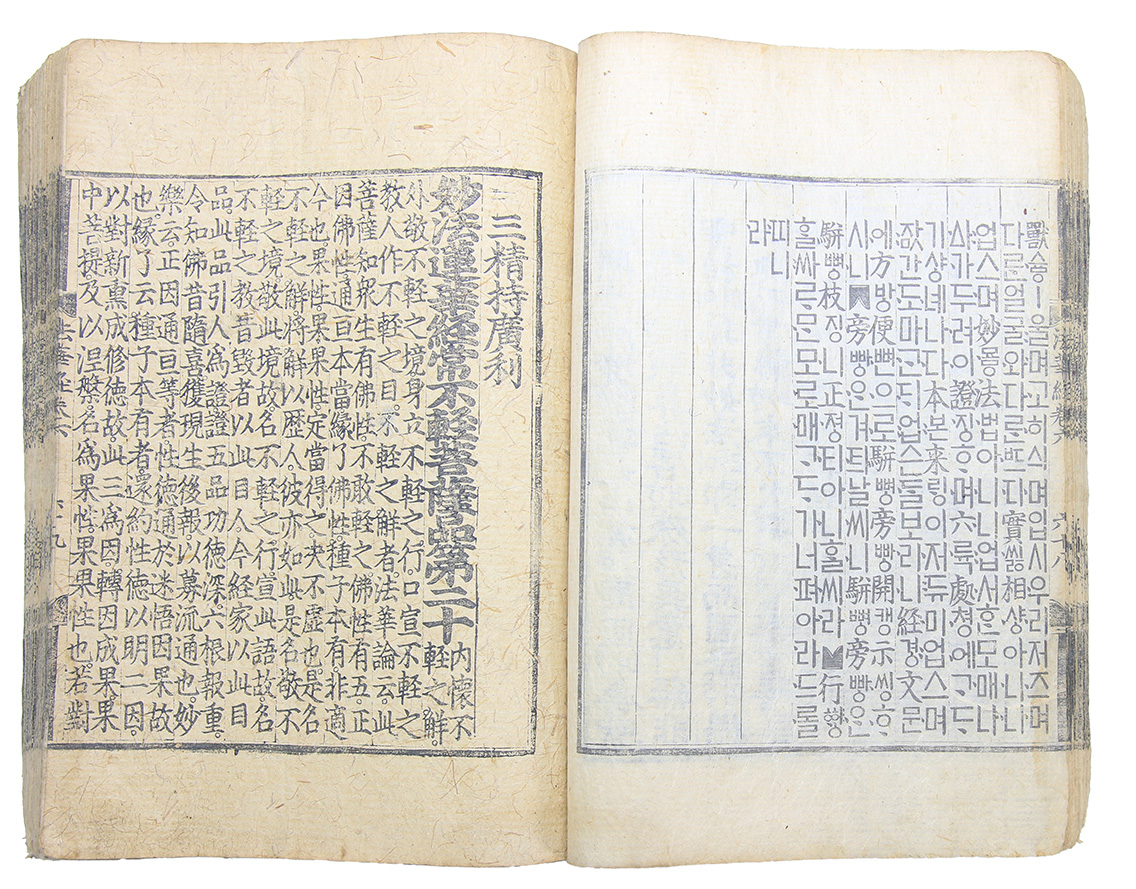 獸슝ㅣ울며고히식며입시우리저즈며
다ᄅᆞᆫ얼굴와다ᄅᆞᆫᄠᅳ디實씷相샹아니니
업스며妙묳法법아니니업서ᄒᆞᆫ도매나
ᅀᅡ가두려이證징ᄒᆞ며六륙處쳥에ᄀᆞᄃᆞ
기샹녜나다本본來링이저듀미업스며
잢간도마ᄀᆞᆫᄃᆡ업슨ᄃᆞᆯ보리니經경文문
에方방便뼌으로騈뼝旁빵開캥示씽ᄒᆞ
시니旁빵ᄋᆞᆫ겨틔날씨니騈뼝旁빵ᄋᆞᆫ
騈뼝枝징니正졍티아니ᄒᆞᆯ씨라行ᅘᆡᇰ
ᄒᆞᆯ싸ᄅᆞᄆᆞᆫ모로매ᄀᆞᄃᆞ기너펴아라드롤
띠니
라
三精持廣利
妙法蓮華經常不輕菩薩品第二十 內懷不輕之解。
外敬不輕之境。身立不輕之行。口宣不輕之
教。人作不輕之目。不輕之解者。法華論云。此
菩薩知衆生有佛性。不敢輕之。佛性有五。正
因佛性。通亘本當。緣了佛性。種子本有。非適
今也。果性。果果性。定當得之。決不虛也。是名
不輕之解。將解以歷人。彼亦如此。是名敬不
輕之境。敬此境故。名不輕之行。宣此語故。名
不輕之教。昔毁者以此目人。今經家以此目
品。此品引人爲證。證五品功德深。六根報重。
令知佛昔隨喜。獲現生後報。以募流通也。妙
樂云。正因通亘等者。性德通於迷悟因果故
也。緣了云種子本有者。還約性德以明二因。
以對新熏成修德故。此三爲因。轉因成果。果
中菩提。及以涅槃。名爲果性。果果性也。若對